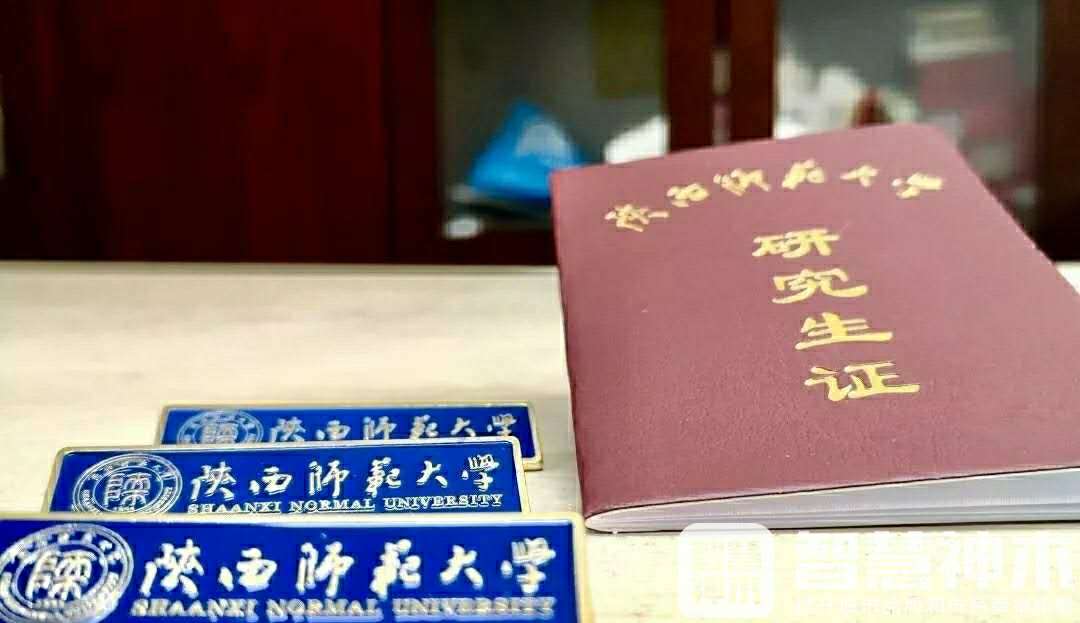 陕西师范大学
研究生证
陕西师范大学
陕西师范大学
SHAANXI NORMAL UNIVERSITY
陕西师范大学
SHAANXI NORMAL UNIVERSITY
智慧神木